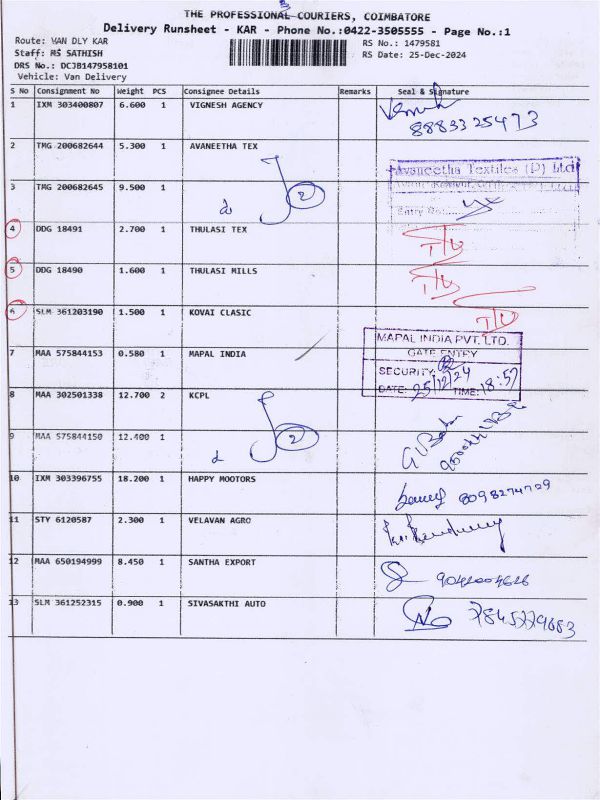 THE PROFESSIONAL COURIERS, COIMBATORE
Delivery Runsheet - KAR - Phone No.:0422-3505555 - Page No.:1
Route: VAN DLY KAR
Staff: MS SATHISH
DRS No.: DCJB147958101
Vehicle: Van Delivery
RS No.: 1479581
RS Date: 25-Dec-2024
S No Consignment No Weight PCS Consignee Details Remarks Seal & Signature
1 IXM 303400807 6.600 1 VIGNESH AGENCY
8883325473
2 TMG 200682644 5.300 1 AVANEETHA TEX
Avaneetha Textiles (P) Ltd
3 TMG 200682645 9.500 1
2
Entry No.
4 DDG 18491 2.700 1 THULASI TEX
5 DDG 18490 1.600 1 THULASI MILLS
6 SLM 361203190 1.500 1 KOVAI CLASIC
7 MAA 575844153 0.580 1 MAPAL INDIA
MAPAL INDIA PVT. LTD.
GATE ENTRY
SECURITY
DATE: 25/12/24 TIME: 18:57
8 MAA 302501338 12.700 2 KCPL
9 MAA 575844150 12.400 1
2
10 IXM 303396755 18.200 1 HAPPY MOOTORS
8098274729
11 STY 6120587 2.300 1 VELAVAN AGRO
12 MAA 650194999 8.450 1 SANTHA EXPORT
9042004626
13 SLM 361252315 0.900 1 SIVASAKTHI AUTO
7845779683